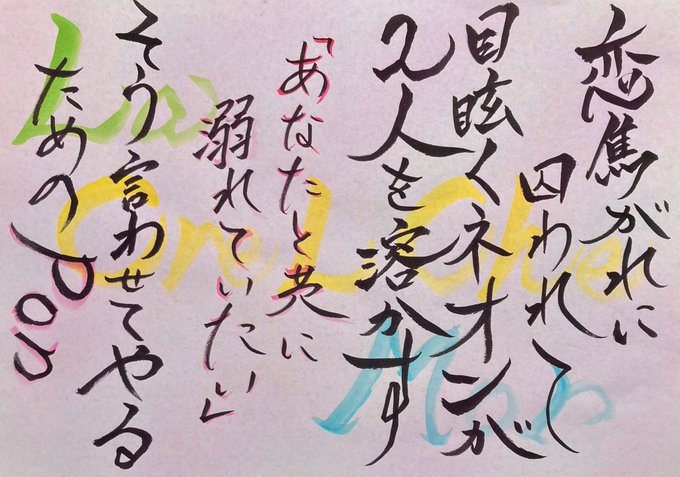 恋焦がれに
囚われて
目眩くネオンが
2人を溶かす
「あなたと共に
溺れていたい」
そう言わせてやる
ためのPon